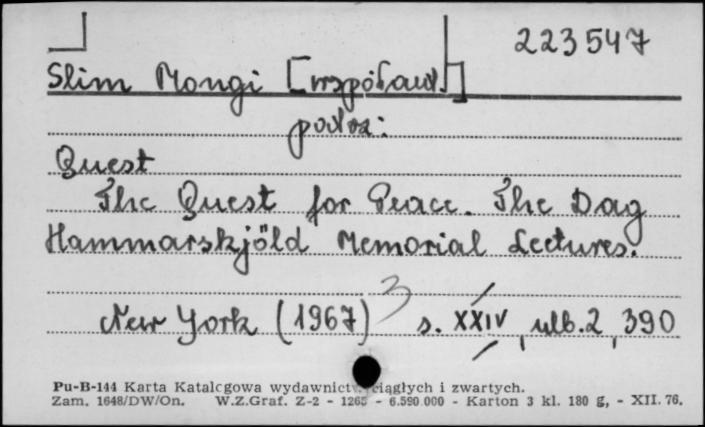 223547
Slim Mongi [współaut.]
patrz:
Quest
The Quest for Peace. The Dag
Hammarskjöld Memorial Lectures.
New York (1967) 3 s. XXIV, ulb. 2, 390
Pu-B-144 Karta Katalogowa wydawnictw ciągłych i zwartych.
Zam. 1648/DW/On. W.Z.Graf. Z-2 - 1265 - 6.590.000 - Karton 3 kl. 180 g, - XII. 76.